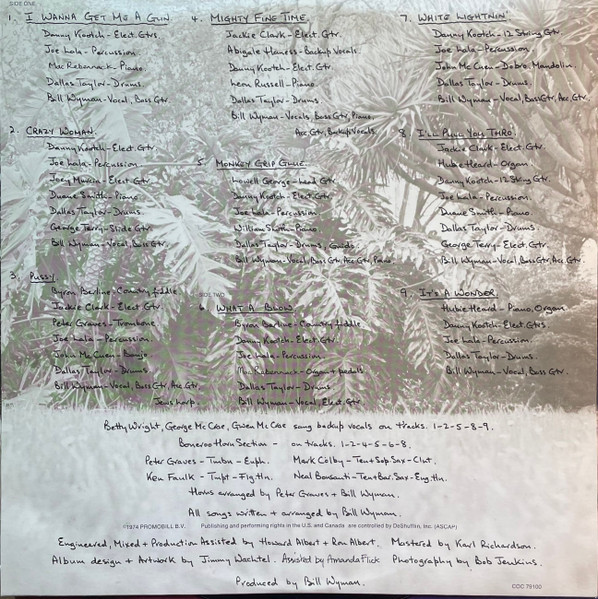 SIDE ONE
1. I WANNA GET ME A GUN
Danny Kootch - Elect. Gtrs.
Joe Lala - Percussion.
Mac Rebennack - Piano
Dallas Taylor - Drums.
Bill Wyman - Vocal, Bass Gtr.
2. CRAZY WOMAN.
Danny Kootch - Elect. Gtr.
Joe Lala - Percussion.
Joey Murcia - Elect. Gtr.
Duane Smith - Piano
Dallas Taylor - Drums.
George Terry - Slide Gtr.
Bill Wyman - Vocal, Bass Gtr.
3. PUSSY
Byron Berline - Country fiddle.
Jackie Clark - Elect. Gtr
Peter Graves - Trombone.
Joe Lala - Percussion.
John McCuen - Banjo.
Dallas Taylor - Drums
Bill Wyman - Vocal, Bass Gtr, Acc Gtr.
Jews harp.
4. MIGHTY FINE TIME.
Jackie Clark - Elect. Gtr.
Abigale Haness - Backup Vocals.
Danny Kootch - Elect. Gtr.
Leon Russell - Piano.
Dallas Taylor - Drums
Bill Wyman - Vocals, Bass Gtr, Piano,
Acc Gtr, Backup Vocals.
5. MONKEY GRIP GLUE.
Lowell George - Lead Gtr.
Danny Kootch - Elect. Gtr.
Joe Lala - Percussion.
William Smith - Piano.
Dallas Taylor - Drums,
Bill Wyman - Vocal, Bass Gtr, Acc Gtr, Piano
SIDE TWO
6. WHAT A BLOW.
Byron Berline - Country fiddle.
Danny Kootch - Elect. Gtr.
Joe Lala - Percussion.
Mac Rebennack - Organ + pedals
Dallas Taylor - Drums
Bill Wyman - Vocal, Elect. Gtr
7. WHITE LIGHTNIN'
Danny Kootch - 12 String Gtr
Joe Lala - Percussion.
John McCuen - Dobro, Mandolin.
Dallas Taylor - Drums.
Bill Wyman - Vocal, Bass Gtr, Acc. Gtr.
8. I'LL PULL YOU THRO.
Jackie Clark - Elect. Gtr
Hubie Heard - Organ.
Danny Kootch - 12 String Gtr.
Joe Lala - Percussion.
Duane Smith - Piano.
Dallas Taylor - Drums.
George Terry - Elect. Gtr.
Bill Wyman - Vocal, Bass Gtr, Acc. Gtr.
9. IT'S A WONDER.
Hubie Heard - Piano, Organ
Danny Kootch - Elect. Gtrs
Joe Lala - Percussion.
Dallas Taylor - Drums.
Bill Wyman - Vocal, Bass Gtr.
Betty Wright, George McCrae, Gwen McCrae sang backup vocals on tracks. 1-2-5-8-9.
Boneroo Horn Section - on tracks. 1-2-4-5-6-8.
Peter Graves - Tmbn - Euph. Mark Colby - Ten + Sop. Sax - Clnt.
Ken Faulk - Tmpt - Flg. Hn. Neal Bonsanti - Ten + Bar. Sax - Eng. Hn.
Horns arranged by Peter Graves + Bill Wyman.
All songs written + arranged by Bill Wyman.
©1974 PROMOBILL B.V. Publishing and performing rights in the U.S. and Canada are controlled by DeShufflin, Inc. (ASCAP)
Engineered, Mixed + Production Assisted by Howard Albert + Ron Albert. Mastered by Karl Richardson.
Album design + Artwork by Jimmy Wachtel. Assisted by Amanda Flick Photography by Bob Jenkins.
Produced by Bill Wyman.
COC 79100